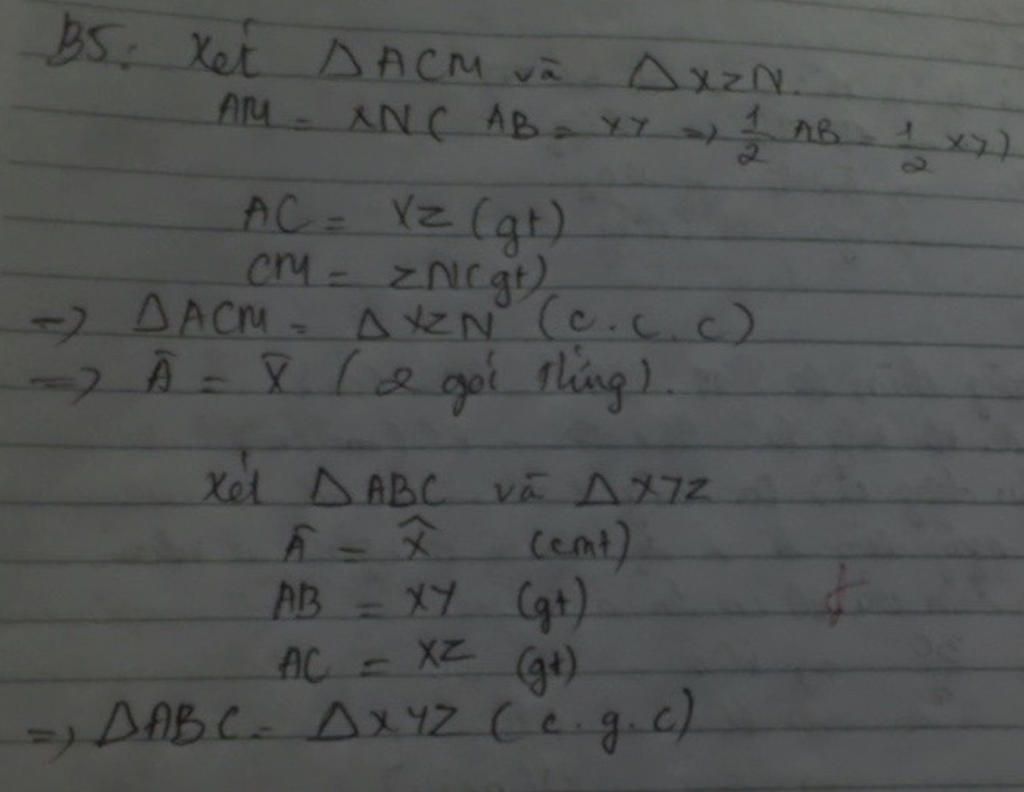 B5: Xét ΔACM và ΔXZN.
AM = XN ( AB = XY => 1/2 AB = 1/2 XY)
AC = XZ (gt)
CM = ZN (gt)
=> ΔACM = ΔXZN (c.c.c)
=> Â = X̂ (2 góc t/ứng).
Xét ΔABC và ΔXYZ
Â = X̂ (cmt)
AB = XY (gt)
AC = XZ (gt)
=> ΔABC = ΔXYZ (c.g.c)